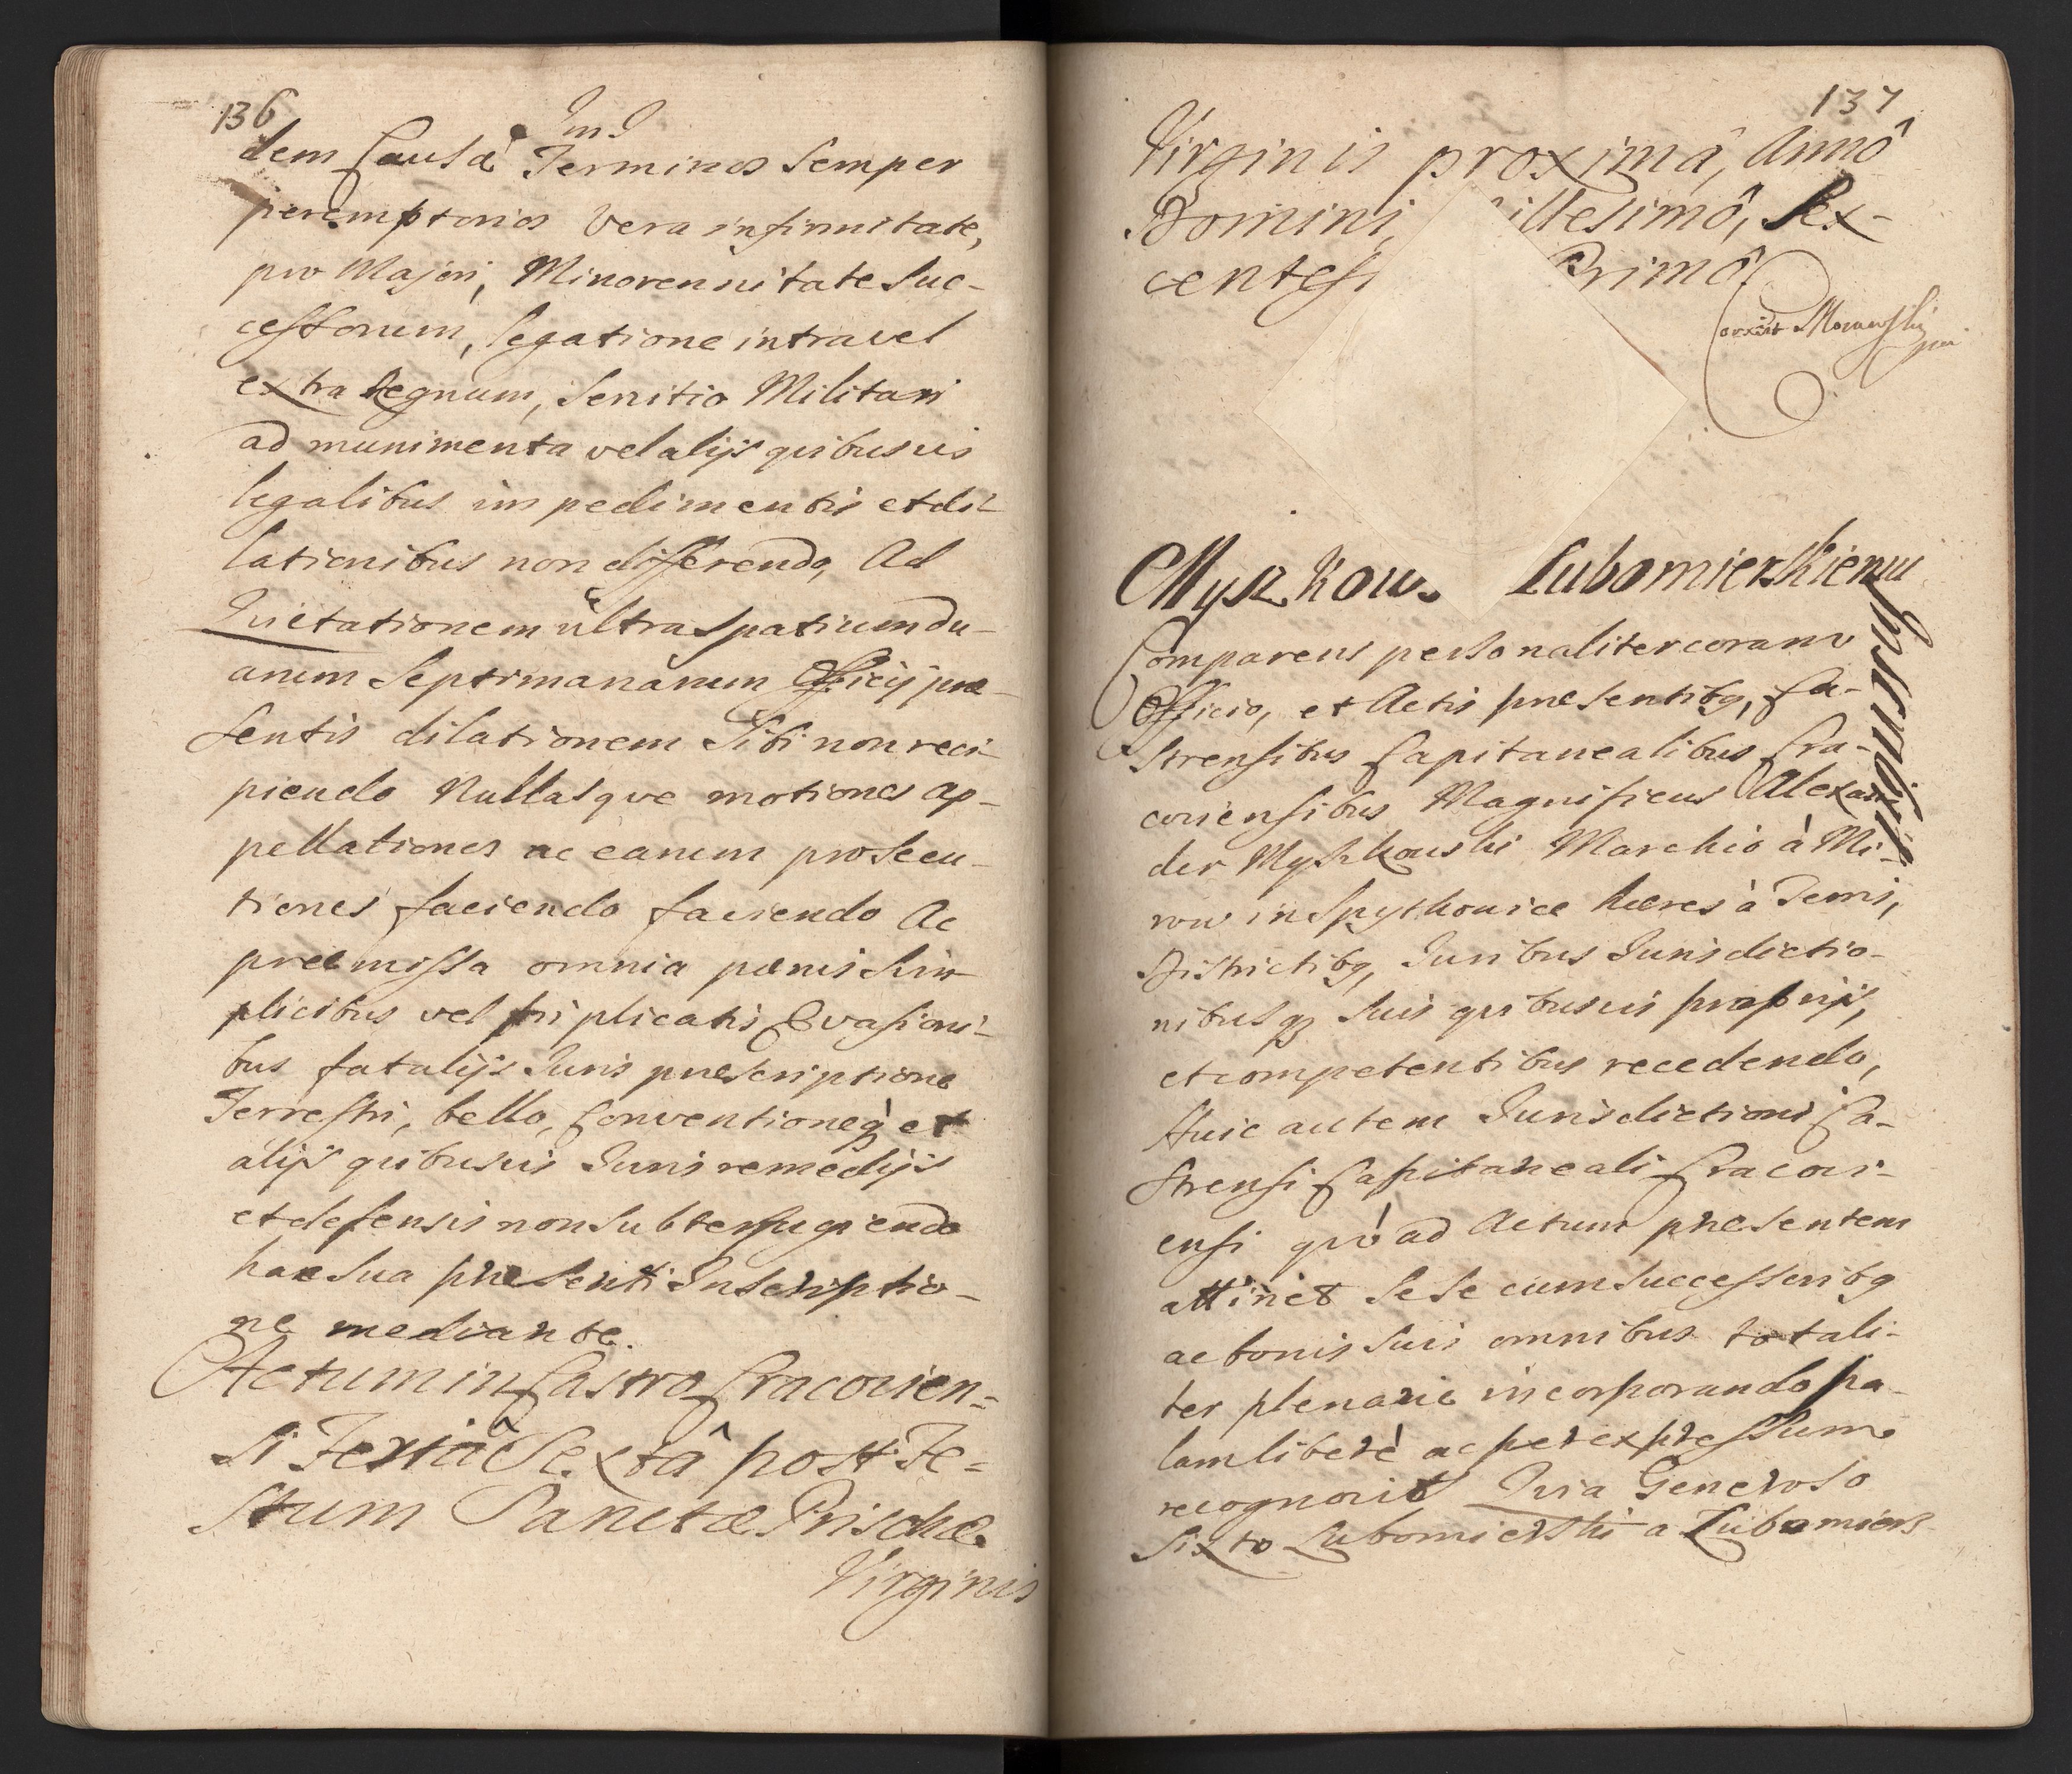 136
Ind
dem Causâ Terminos Semper
peremptorios Vera infirmitate,
pro Majori, Minorennitate Suc-
cessorum, legatione intra vel
extra Regnum, Servitio Militari
ad munimenta vel alijs quibusvis
legalibus impedimentis et di-
lationibus non differendo, Ad
Quietationem ultra spatium du-
arum Septimanarum Officij præ-
sentis dilationem Sibi non reci-
piendo Nullasque motiones ap-
pellationes ac earum prosecu-
tiones faciendo faciendo Ac
præmissa omnia pænis Sim-
plicibus vel triplicatis Evasioni-
bus fatalijs Juris præscriptione
Terrestri, bello, Conventioneq et
alijs quibusvis Juris remedijs
et defensis non Subterfugiendo
hac Sua præsenti Inscriptio-
ne mediante.
Actum in Castro Cracovien=
Si Feriâ Sextâ post Fe=
stum Sanctæ Priscæ
Virginis
137
Virginis proximâ, Annô
Domini, illesimô, Sex-
centesi Primô.
Myszkow. Lubomierskiemu
Inscribit
Comparens personaliter coram
Officio, et Actis præsentibq, Ca-
strensibus Capitanealibus Cra-
coviensibus Magnificus Alexan
der Myszkowski Marchio à Mi-
row in Spytkowice hæres à Terris,
Districtibq, Juribus Jurisdictio-
nibusq Suis quibusvis proprijs,
et competentibus recedendo,
Huic autem Jurisdictioni Ca-
strensi Capitaneali Cracovi-
ensi quò ad Actum præsentem
attinet Sese cum Successoribq
ac bonis Suis omnibus totali-
ter plenarie incorporando pa-
lam liberè ac per expressum
recognovit Quia Generoso
Sixto Lubomierski a Lubomierz